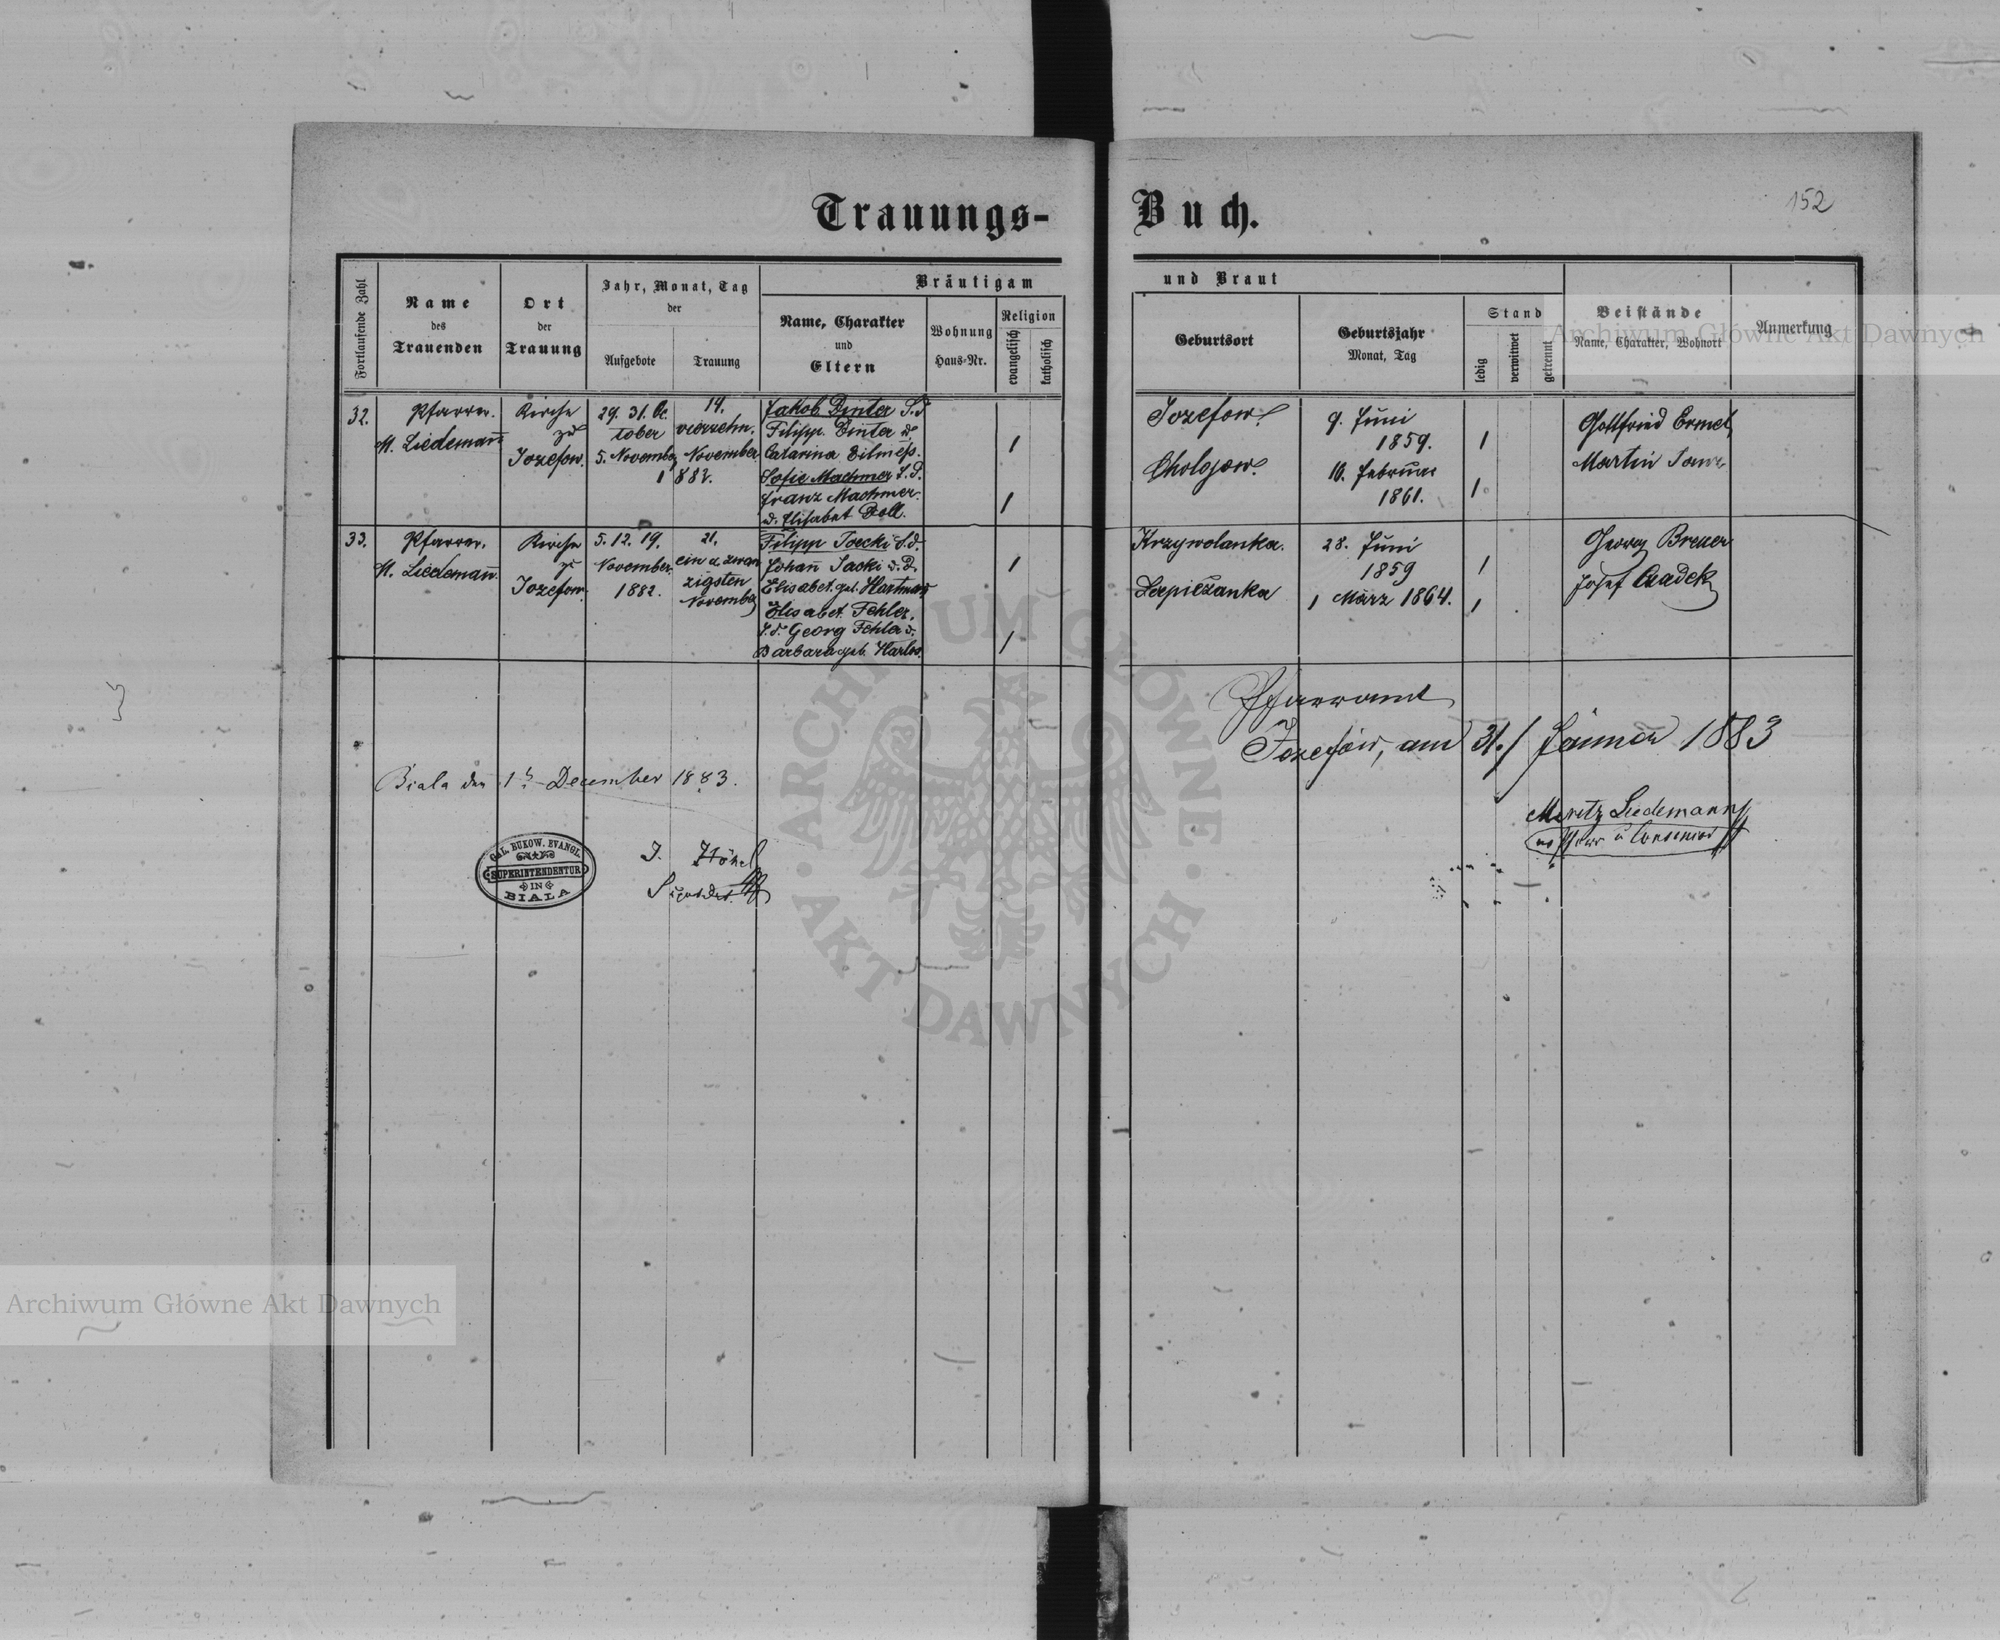 Trauungs-
Buch.
152
Fortlaufende Zahl
Name
des
Trauenden
Ort
der
Trauung
Jahr, Monat, Tag
der
Aufgebote
Trauung
Bräutigam
Name, Charakter
und
Eltern
Wohnung
Haus-Nr.
Religion
evangelisch
katholisch
und Braut
Geburtsort
Geburtsjahr
Monat, Tag
Stand
ledig
verwitwet
getrennt
Beistände
Name, Charakter, Wohnort
Anmerkung
Archiwum Główne Akt Dawnych
32.
Pfarrer.
M. Liedemann
Kirche
zu
Jozefow.
29. 31. Oc
tober
5. November
14.
vierzehn.
November
1882.
Jakob Dinter S.d
Filipp. Dinter u.
Catarina
Sofie Machmer T.d.
Franz Machmer
u. Elisabet Doll.
Jozefow.
9. Juni
1859.
Cholojow.
10. Februar
1861.
Gottfried Ermel,
Martin
33.
Pfarrer.
M. Liedemann.
Kirche
zu
Jozefow.
5. 12. 19.
November
1882.
21.
ein u zwan
zigsten
November
Filipp S.d.
Johann
Elisabet. geb. Hartman
Elisabet Fehler,
T.d. Georg Fehler u.
Barbara geb. Harlos.
Krzywolanka.
28. Juni
1859
Lepiczanka
1 März 1864.
Georg Breuer
Josef Czadek
Pfarramt
Jozefów, am 31./ Jänner 1883
Moritz Liedemann
Pfarrer u. Consenior
Biala den 1. December 1883.
GAL. BUKOW. EVANGL.
SUPERINTENDENTUR
IN
BIALA
J. Hönel
Suptdt.
ARCHIWUM GŁÓWNE AKT DAWNYCH
Archiwum Główne Akt Dawnych